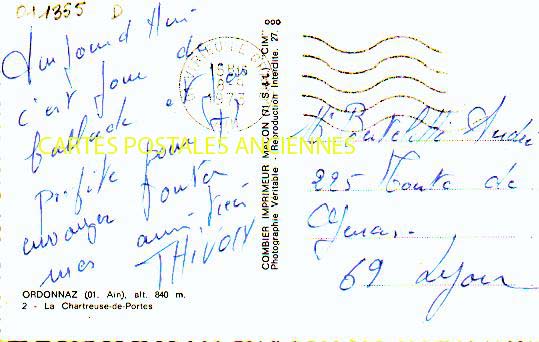 011355 D
Aujourd'hui
c'est jour de
ballade et j'en
profite pour
envoyer toutes
mes amitiés
THIVOIN
CARTES POSTALES ANCIENNES
ORDONNAZ (01. Ain), alt. 840 m.
2 - La Chartreuse-de-Portes
COMBIER IMPRIMEUR MACON (71. S.-&-L.) "CIM"
Photographie Véritable - Reproduction Interdite. 27.
Mr
André
225 Route de
69 Lyon